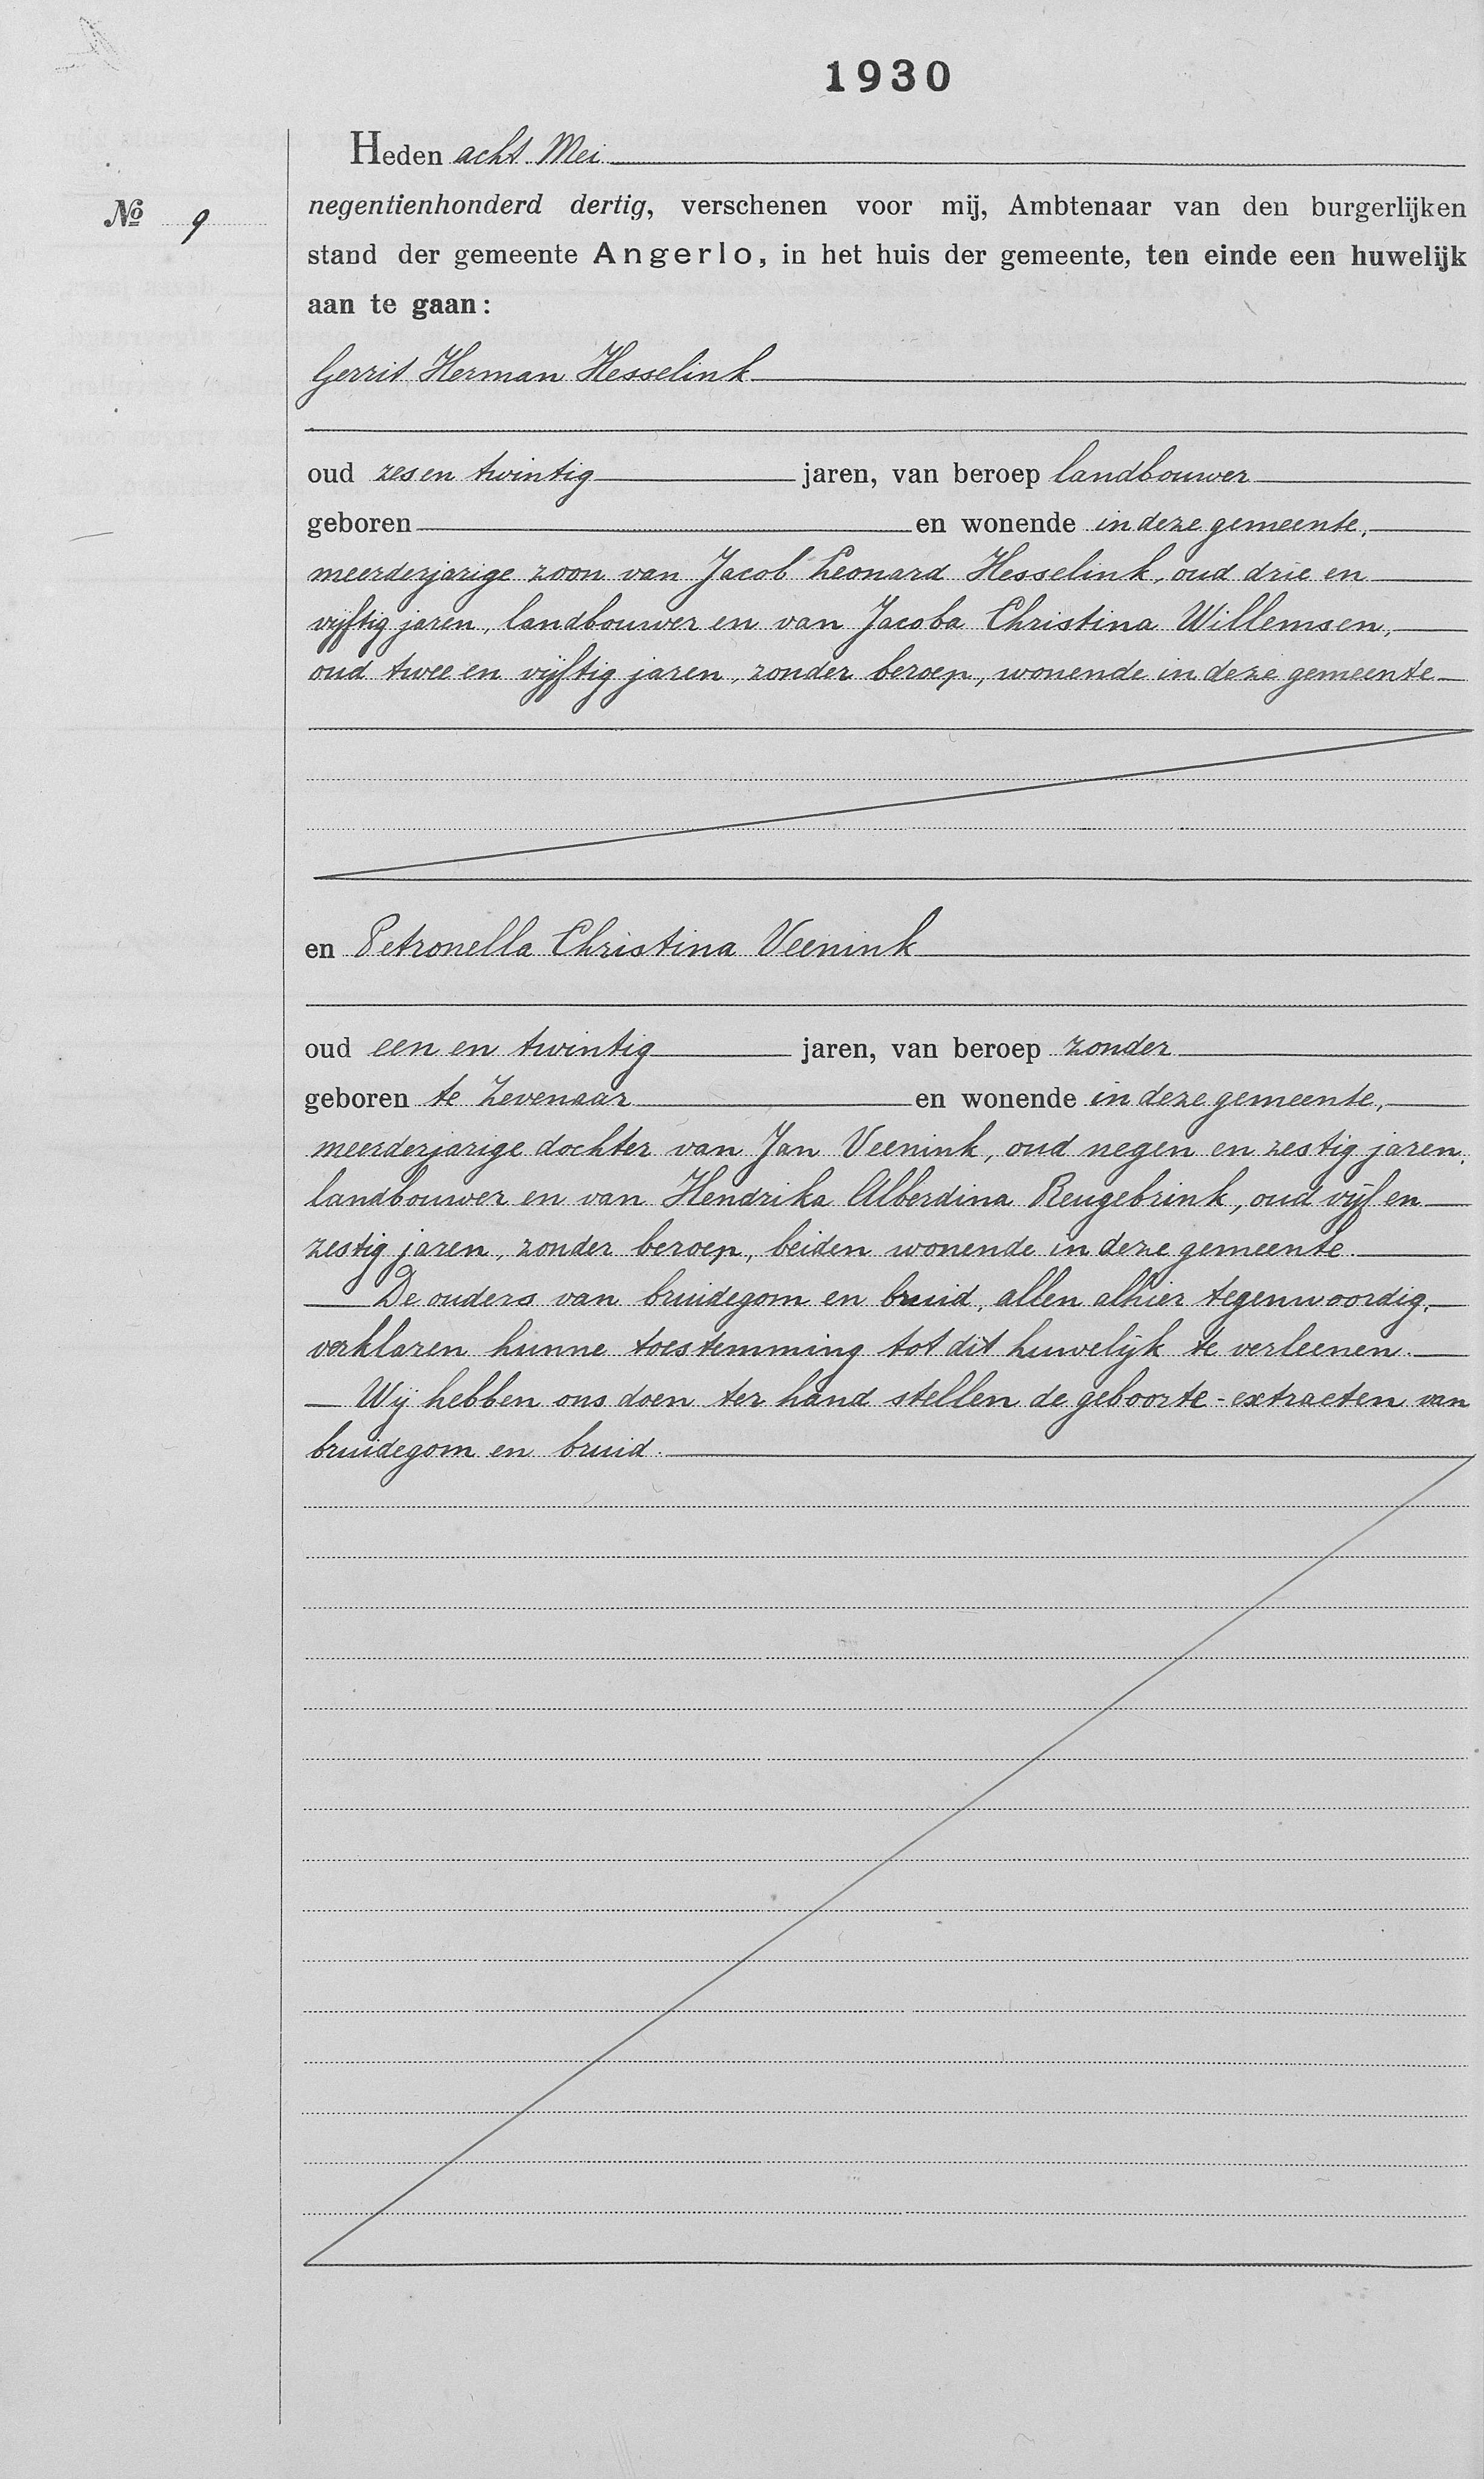 1930
Heden acht Mei
№ 9
negentienhonderd dertig, verschenen voor mij, Ambtenaar van den burgerlijken
stand der gemeente Angerlo, in het huis der gemeente, ten einde een huwelijk
aan te gaan:
Gerrit Herman Hesselink
oud zes en twintig jaren, van beroep landbouwer
geboren en wonende in deze gemeente,
meerderjarige zoon van Jacob Leonard Hesselink, oud drie en
vijftig jaren, landbouwer en van Jacoba Christina Willemsen,
oud twee en vijftig jaren, zonder beroep, wonende in deze gemeente
en Petronella Christina Veenink
oud een en twintig jaren, van beroep zonder
geboren te Zevenaar en wonende in deze gemeente,
meerderjarige dochter van Jan Veenink, oud negen en zestig jaren,
landbouwer en van Hendrika Alberdina Reugebrink, oud vijf en
zestig jaren, zonder beroep, beiden wonende in deze gemeente.
De ouders van bruidegom en bruid, allen alhier tegenwoordig,
verklaren hunne toestemming tot dit huwelijk te verleenen.
Wij hebben ons doen ter hand stellen de geboorte-extracten van
bruidegom en bruid.